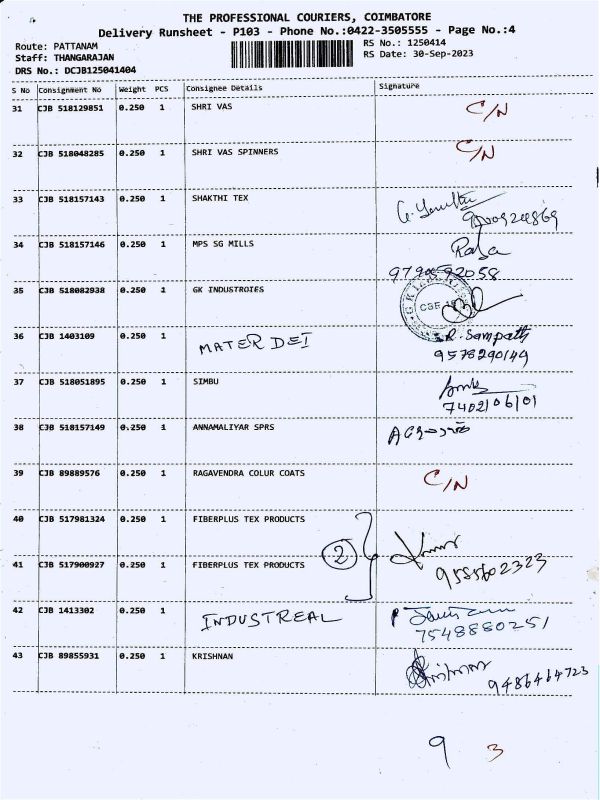 THE PROFESSIONAL COURIERS, COIMBATORE
Delivery Runsheet - P103 - Phone No.:0422-3505555 - Page No.:4
Route: PATTANAM
RS No.: 1250414
Staff: THANGARAJAN
RS Date: 30-Sep-2023
DRS No.: DCJB125041404
S No Consignment No Weight PCS Consignee Details Signature
31 CJB 518129851 0.250 1 SHRI VAS C/N
32 CJB 518048285 0.250 1 SHRI VAS SPINNERS C/N
33 CJB 518157143 0.250 1 SHAKTHI TEX
34 CJB 518157146 0.250 1 MPS SG MILLS Raja
35 CJB 518082938 0.250 1 GK INDUSTROIES
36 CJB 1403109 0.250 1 MATER DEI R. Sampath
9578290149
37 CJB 518051895 0.250 1 SIMBU
7402106101
38 CJB 518157149 0.250 1 ANNAMALIYAR SPRS
39 CJB 89889576 0.250 1 RAGAVENDRA COLUR COATS C/N
40 CJB 517981324 0.250 1 FIBERPLUS TEX PRODUCTS
2
41 CJB 517900927 0.250 1 FIBERPLUS TEX PRODUCTS
42 CJB 1413302 0.250 1 INDUSTREAL
7548880251
43 CJB 89855931 0.250 1 KRISHNAN
9486464723
9 3